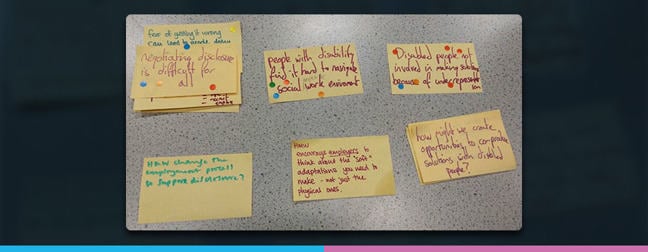 fear of getting it wrong
can lead to
negotiating disclosure
is difficult for
all
people with disability
find it hard to navigate
social work enviroment
Disabled people not
involved in making solutions
because of underrepresentat
ion
HMW change the
employment portal
to support disclosure?
HMW
encourage employers to
think about the "soft"
adaptations you need to
make - not just the
physical ones.
how might we create
opportunities to co-produce
solutions with disabled
people?